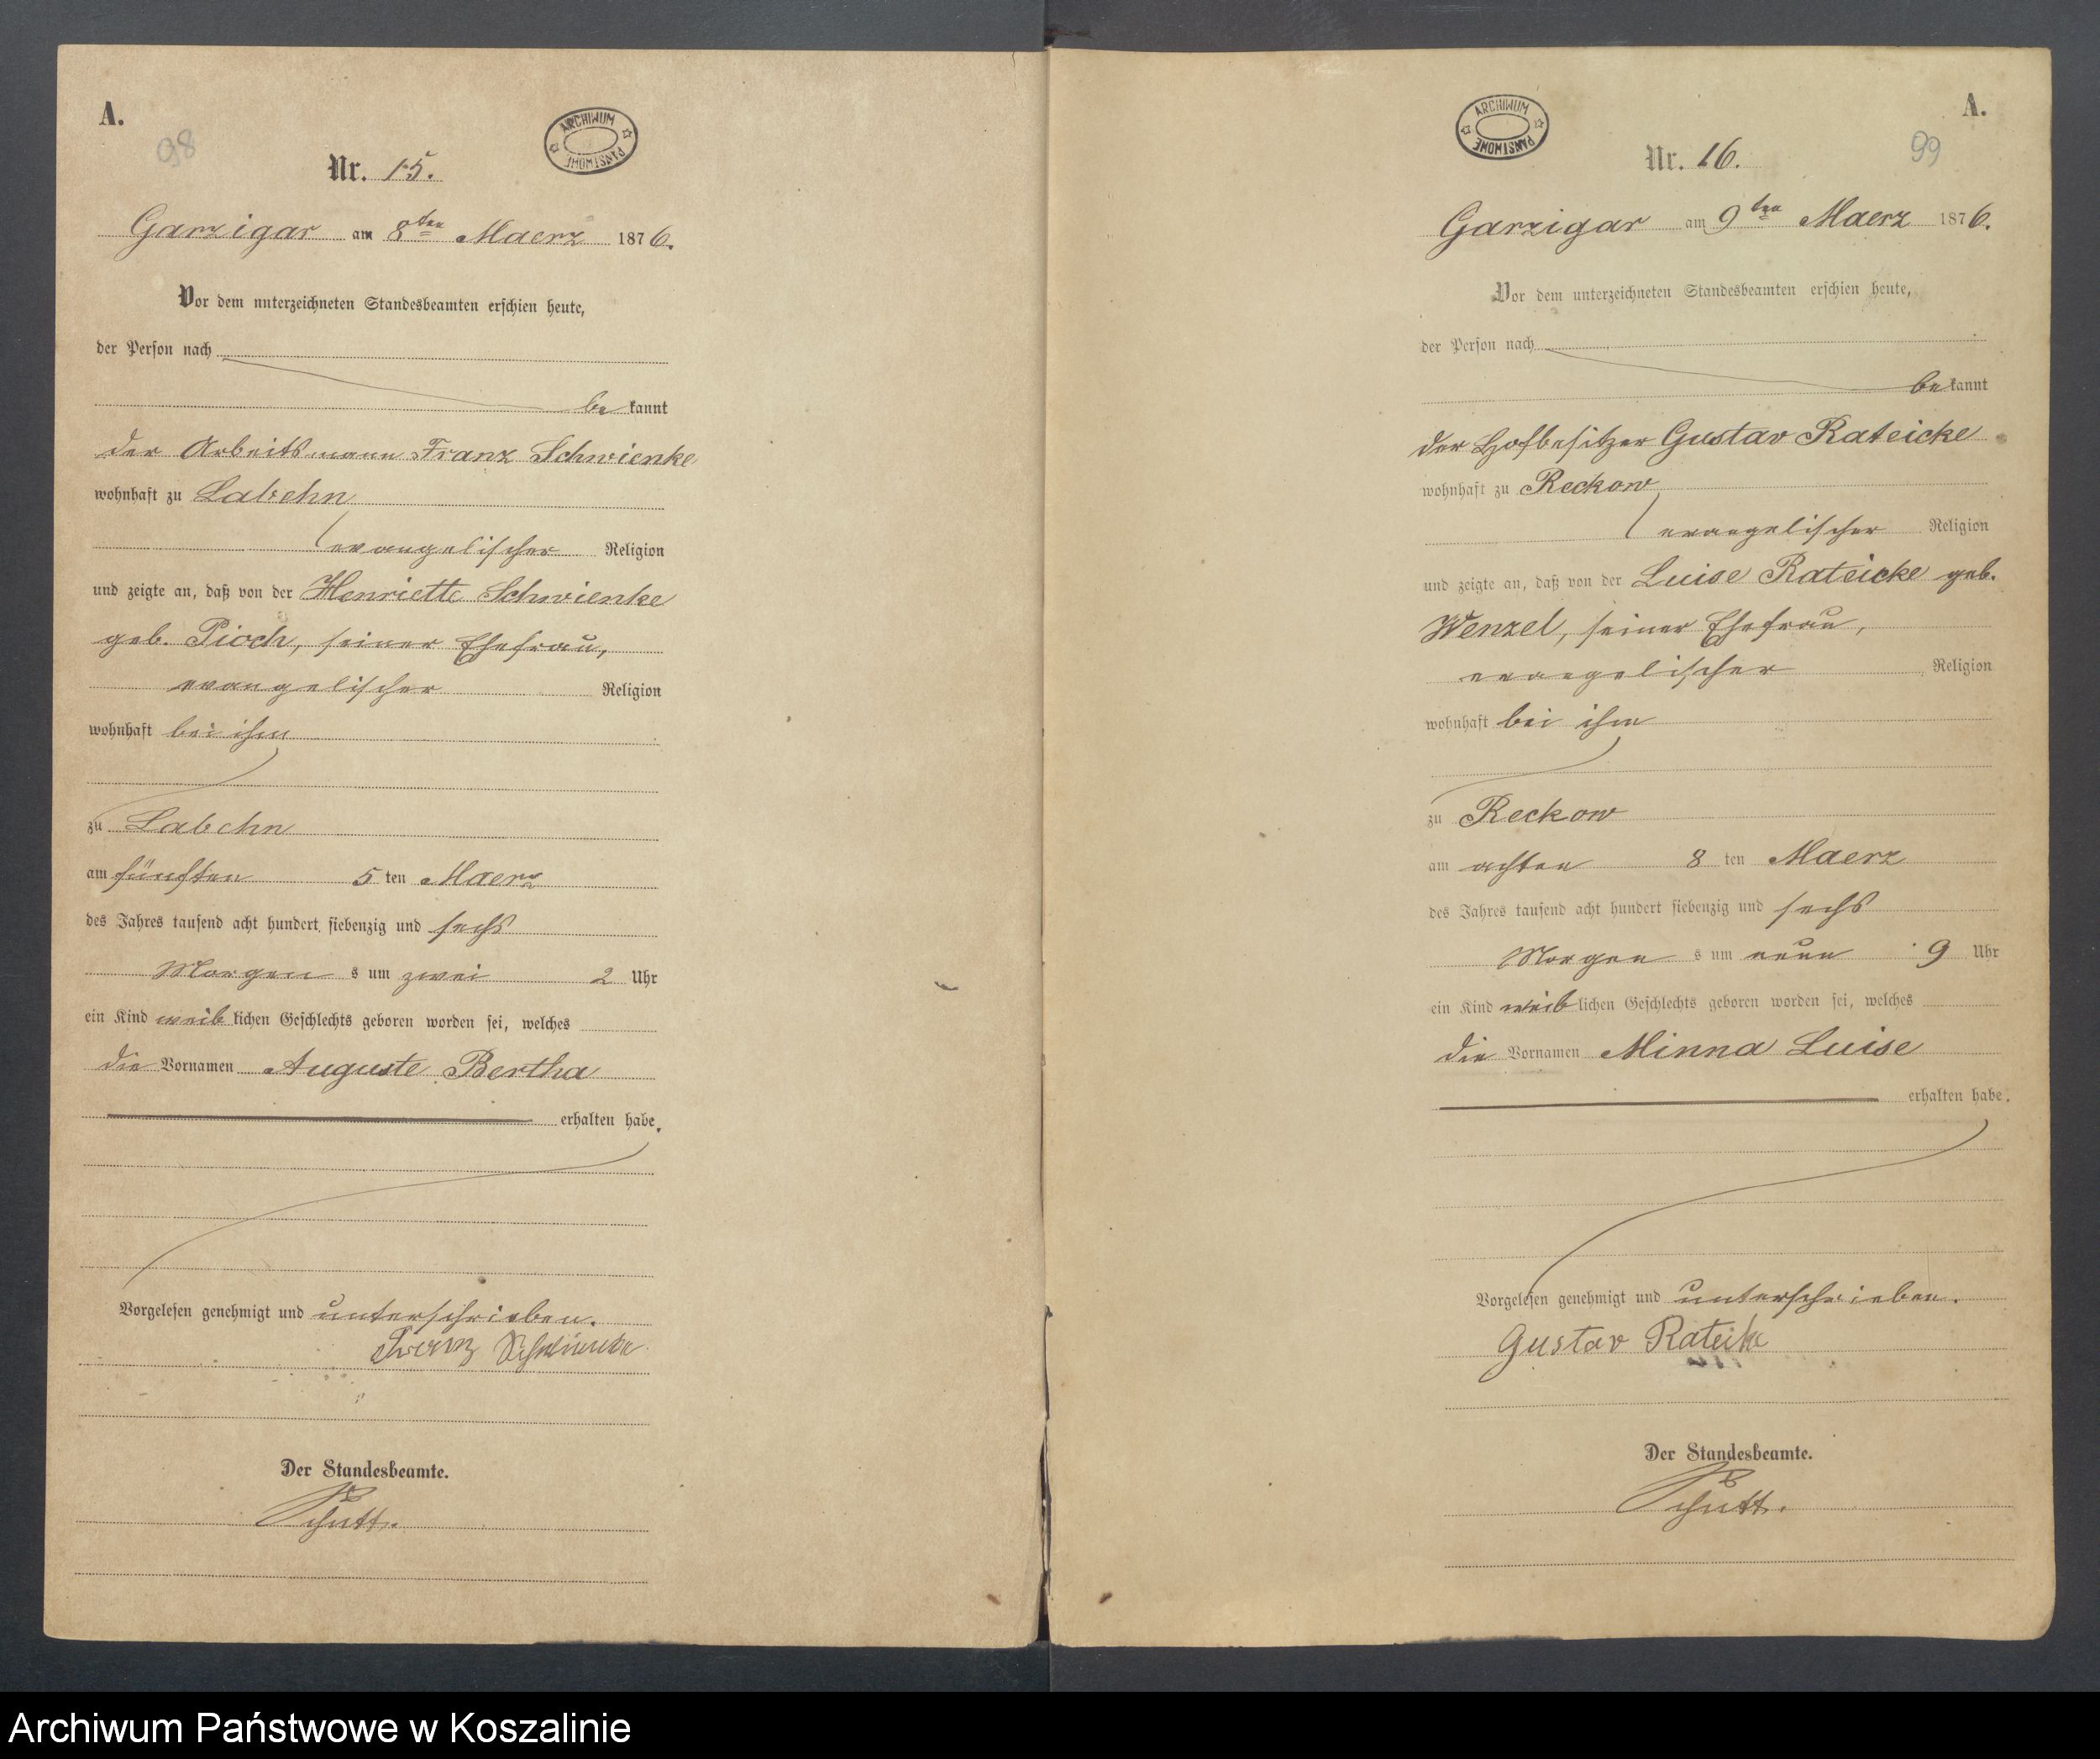 A.
98
ARCHIWUM PAŃSTWOWE
Nr. 15.
Garzigar am 8ten Maerz 1876.
Vor dem unterzeichneten Standesbeamten erschien heute,
der Person nach
be kannt
der Arbeitsmann Franz Schwienke
wohnhaft zu Labehn
evangelischer Religion
und zeigte an, daß von der Henriette Schwienke
geb. Pioch, seiner Ehefrau,
evangelischer Religion
wohnhaft bei ihm
zu Labehn
am fünften 5 ten Maerz
des Jahres tausend acht hundert siebenzig und sechs
Morgen s um zwei 2 Uhr
ein Kind weib lichen Geschlechts geboren worden sei, welches
die Vornamen Auguste Bertha
erhalten habe.
Vorgelesen genehmigt und unterschrieben.
Franz Schwienke
Der Standesbeamte.
Schütt.
A.
99
ARCHIWUM PAŃSTWOWE
Nr. 16.
Garzigar am 9ten Maerz 1876.
Vor dem unterzeichneten Standesbeamten erschien heute,
der Person nach
be kannt
der Hofbesitzer Gustav Rateicke
wohnhaft zu Reckow
evangelischer Religion
und zeigte an, daß von der Luise Rateicke geb.
Wenzel, seiner Ehefrau,
evangelischer Religion
wohnhaft bei ihm
zu Reckow
am achten 8 ten Maerz
des Jahres tausend acht hundert siebenzig und sechs
Morgen s um neun 9 Uhr
ein Kind weib lichen Geschlechts geboren worden sei, welches
die Vornamen Minna Luise
erhalten habe.
Vorgelesen genehmigt und unterschrieben.
Gustav Rateike
Der Standesbeamte.
Schütt.
Archiwum Państwowe w Koszalinie